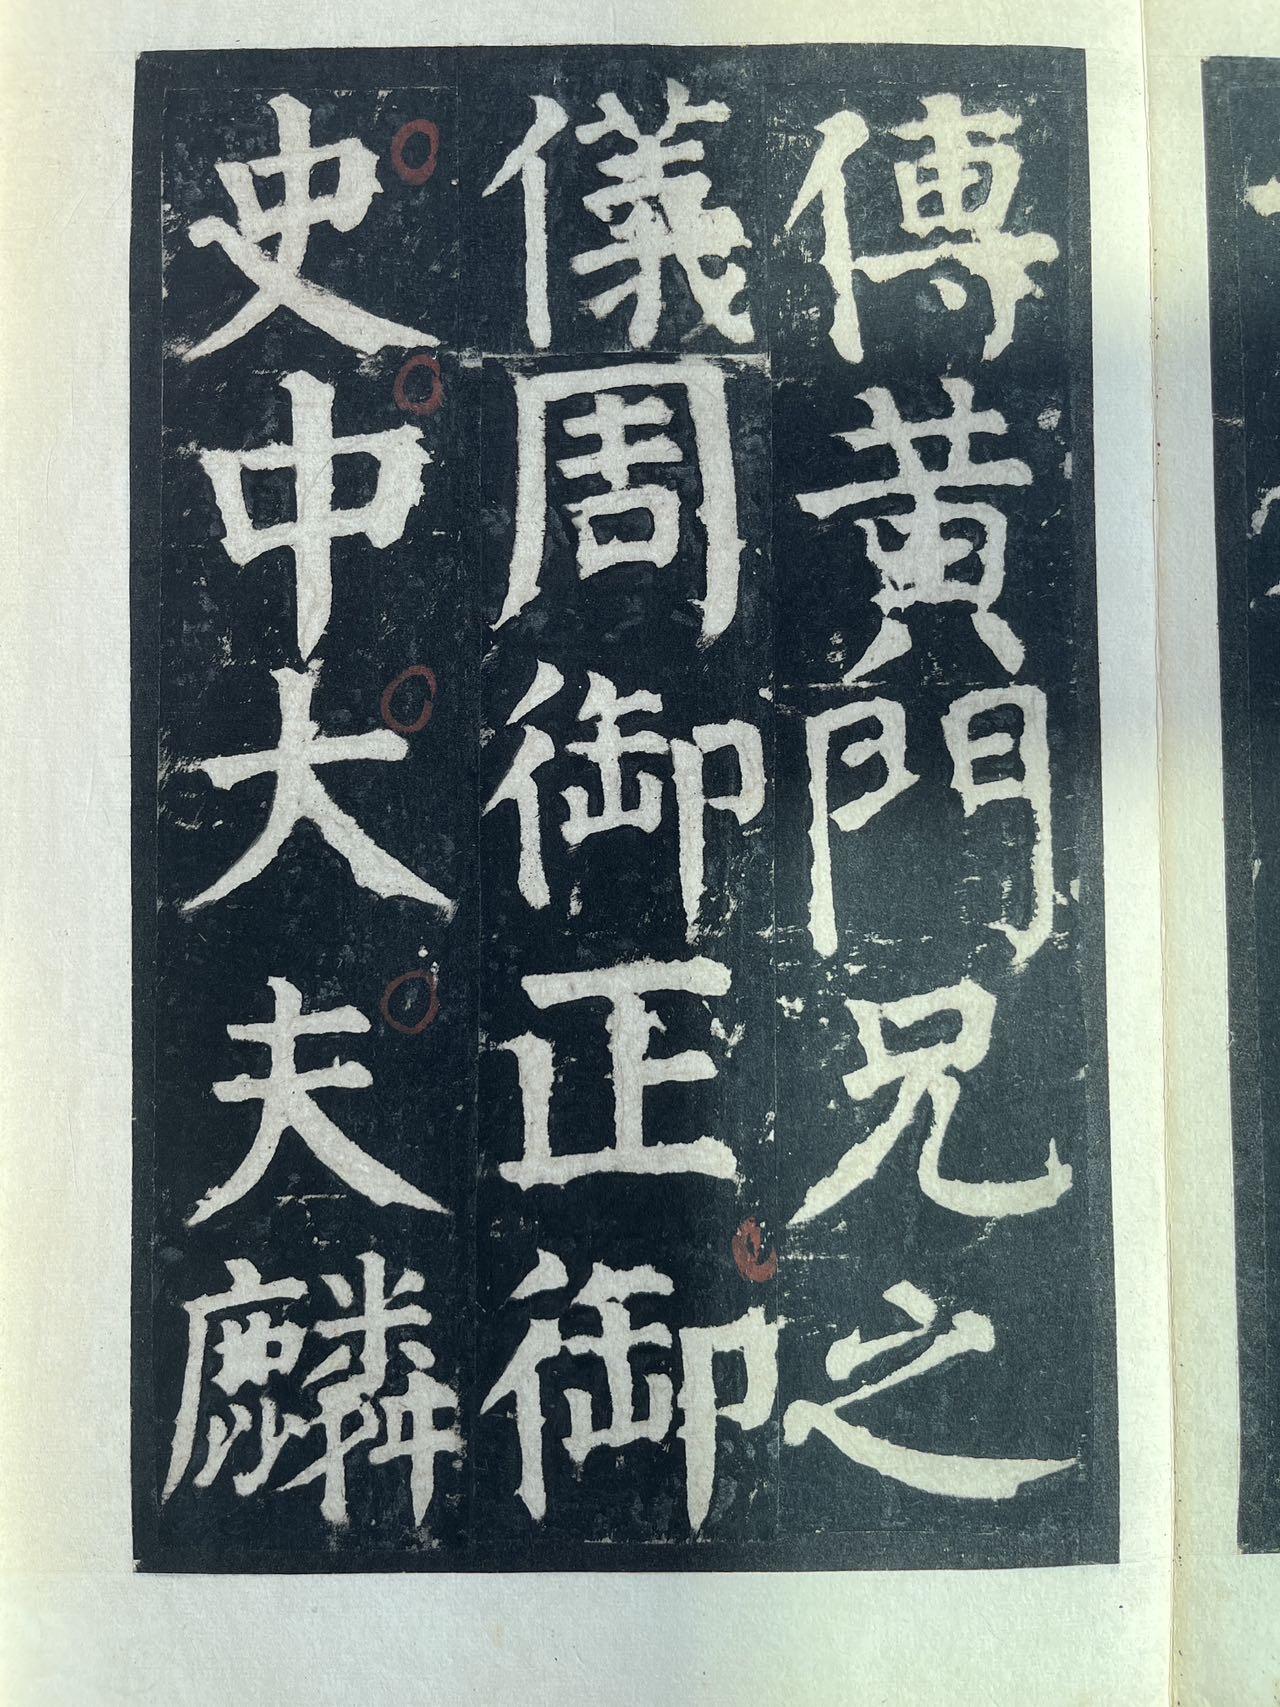 傅黃門兄之
儀周御正御
史中大夫麟